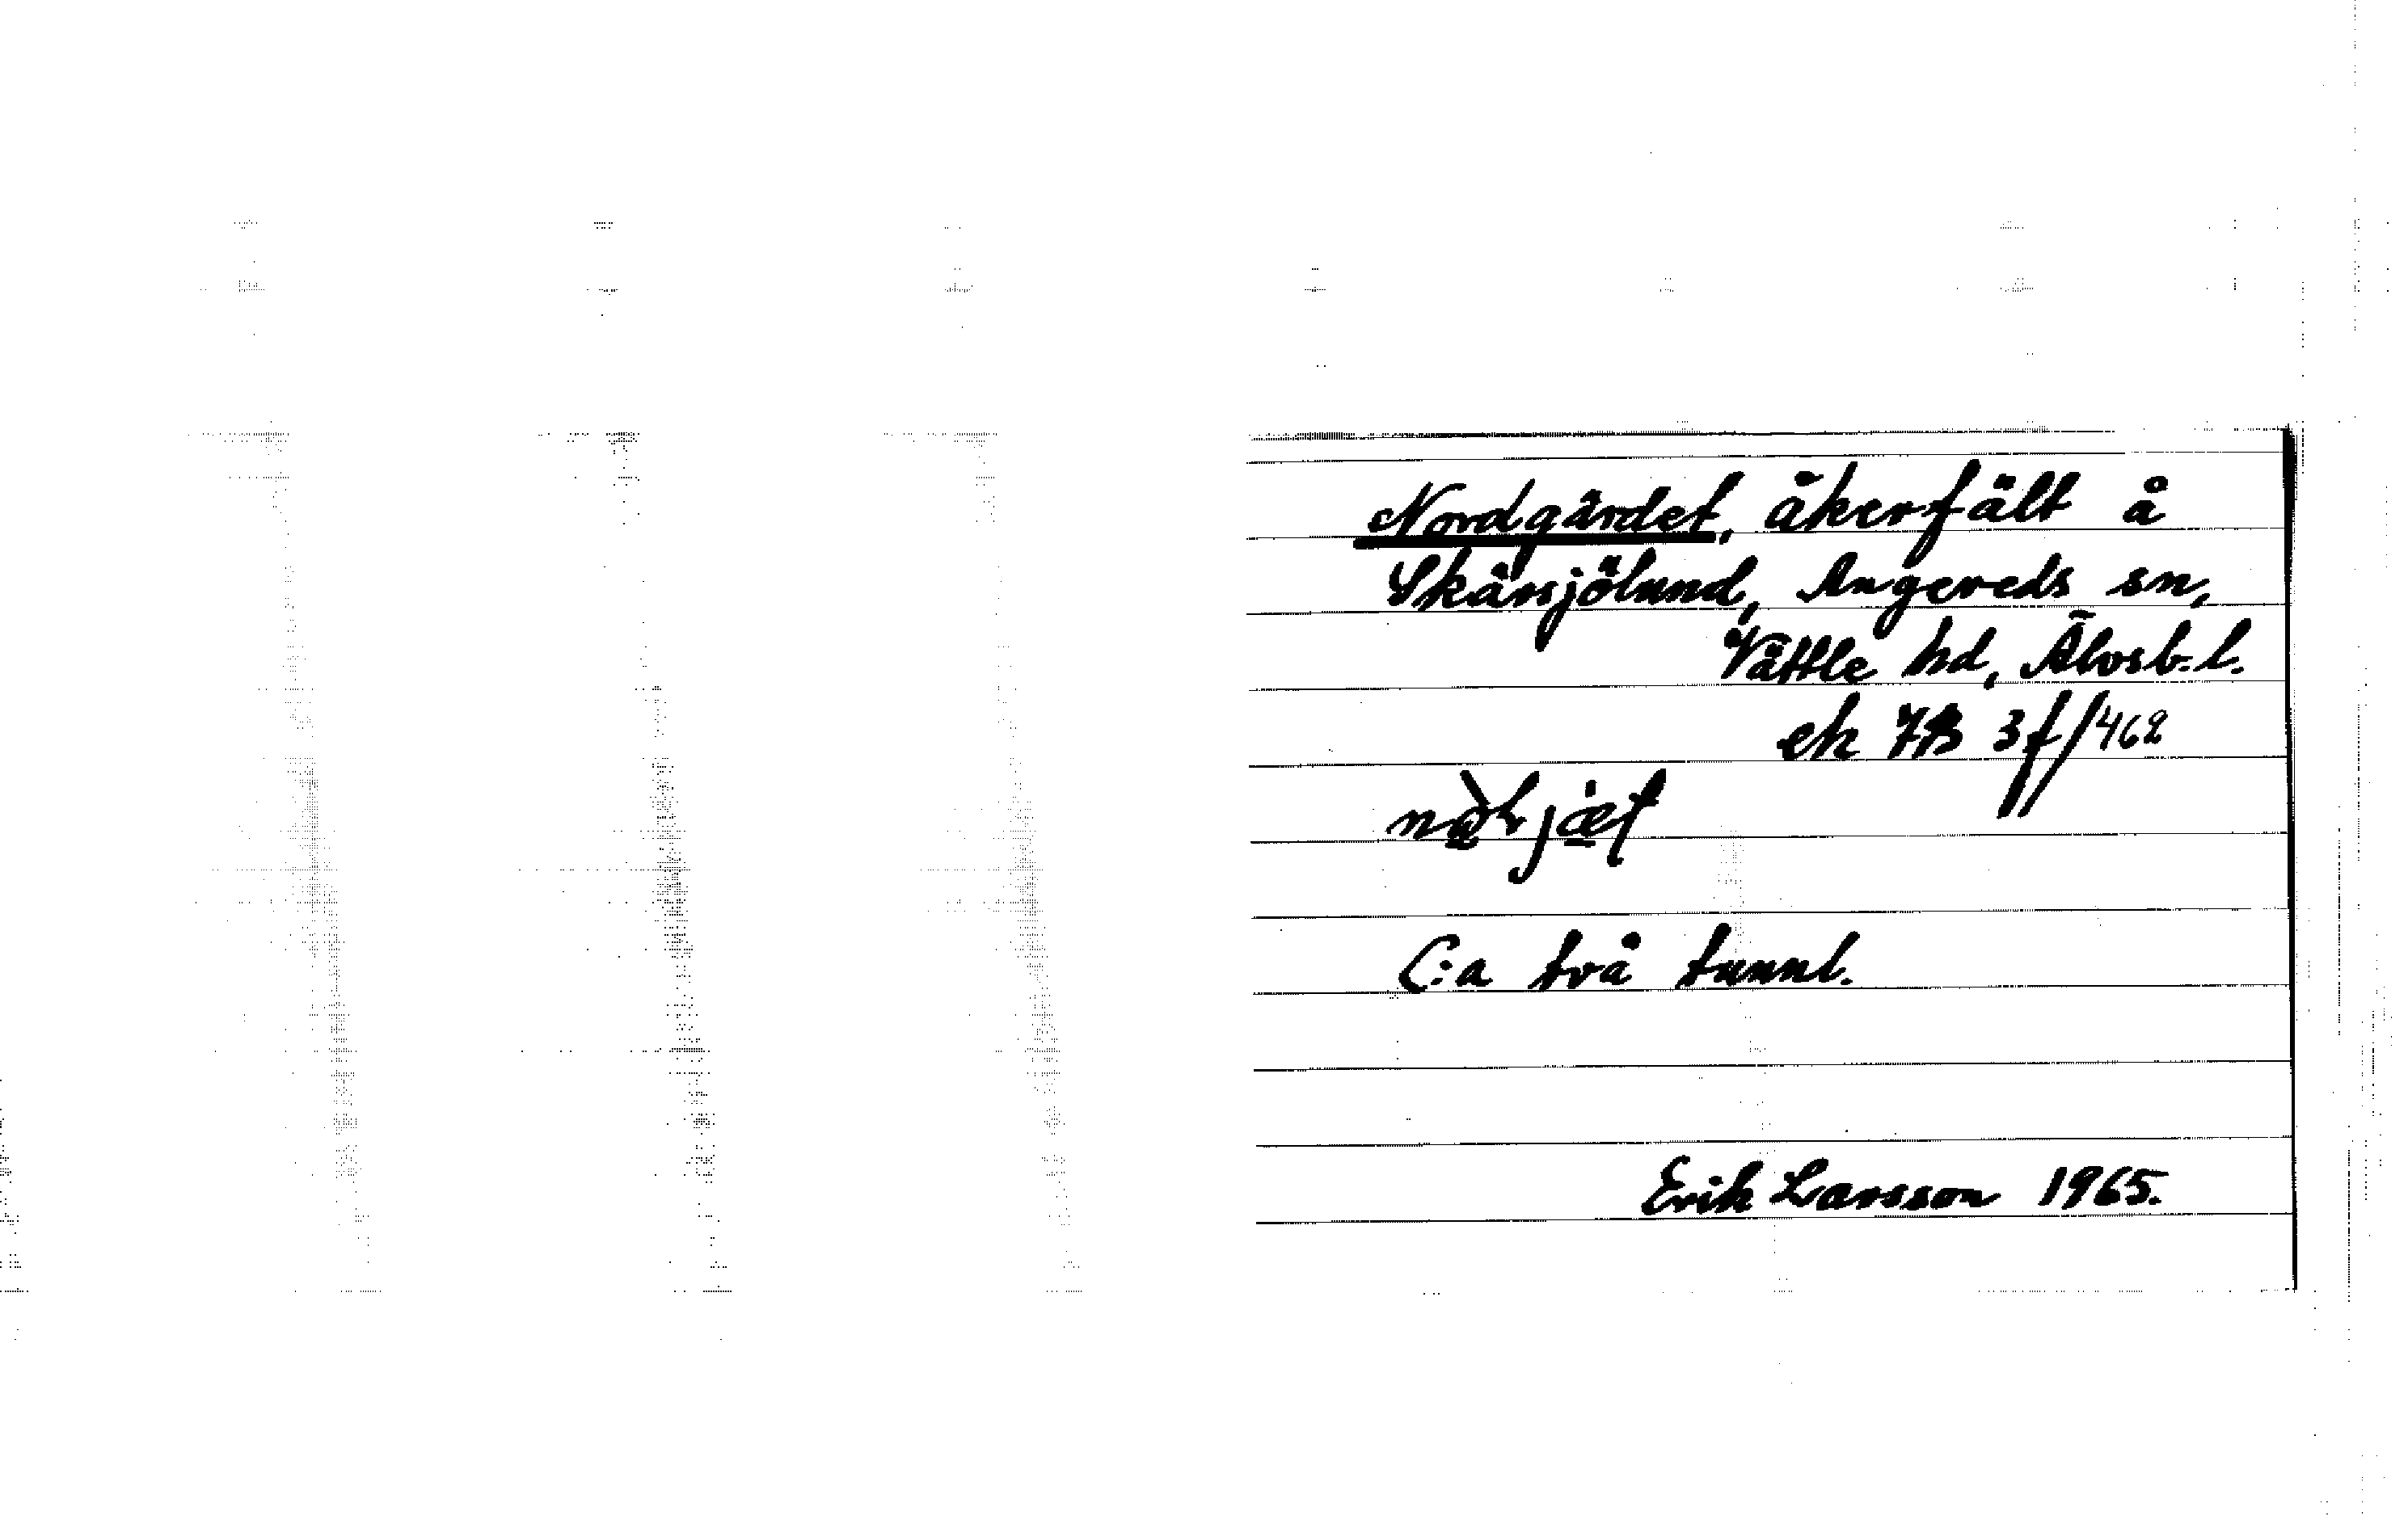 Nordgärdet, åkerfält å
Skärsjölund, Angereds sn,
Vättle hd, Älvsb. l.
ek 7B 3f/462
C:a två tunnl.
Erik Larsson 1965.